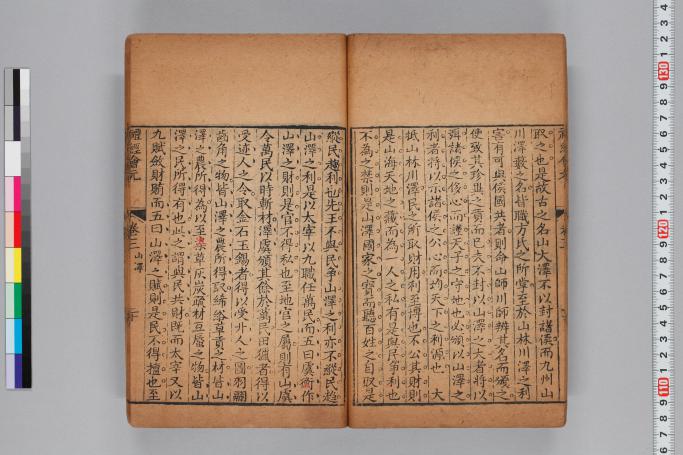 取之也是故古之名山大澤不以封諸侯而九州山
川澤藪之名皆職方氏之所掌至於山林川澤之利
害有可與侯國共者則命山師川師辨其名而頒之
使致其珍異之貢而已夫不封以山澤之大者將以
弭諸侯之侈心而謹天子之守地也必頒以山澤之
利者將以示諸侯之公心而均天下之利源也 大
抵山林川澤民之所取財用利至博也不公其財則
是山海天地之藏而為一人之私有是與民爭利也
不為之禁則是山澤國家之寶而聽百姓之自取是
縱民趨利也先王不與民爭山澤之利亦不縱民趨
山澤之利是以太宰以九職任萬民而五曰虞衡作
山澤之財則是官不得私也至地官之屬則有山虞
令萬民以時斬材澤虞頒其餘於萬民田獵者得以
受迹人之令取金石玉錫者得以受丱人之圖羽翮
齒角之物皆山澤之農所得取絺綌草貢之材皆山
澤之農所得為以至染草灰炭疏材互蜃之物皆山
澤之民所得有也此之謂與民共財既而太宰又以
九賦斂財賄而五曰山澤之賦則是民不得擅也至
禮經會元 卷三 山澤